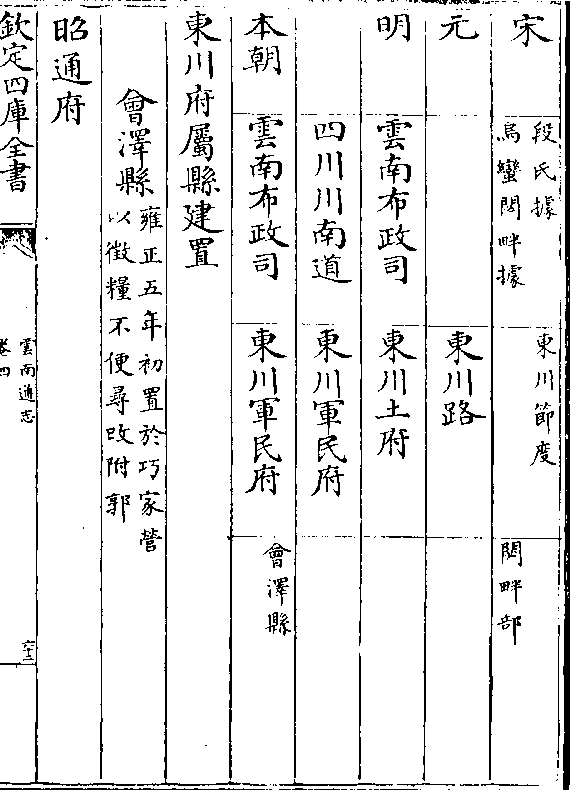 宋
段氏據
烏蠻閟畔據
東川節度
閟畔部
元
東川路
明
雲南布政司
東川土府
四川川南道
東川軍民府
本朝
雲南布政司
東川軍民府
會澤縣
東川府屬縣建置
會澤縣
雍正五年初置於巧家營
以徵糧不便尋改附郭
昭通府
欽定四庫全書
雲南通志
卷四
六十二